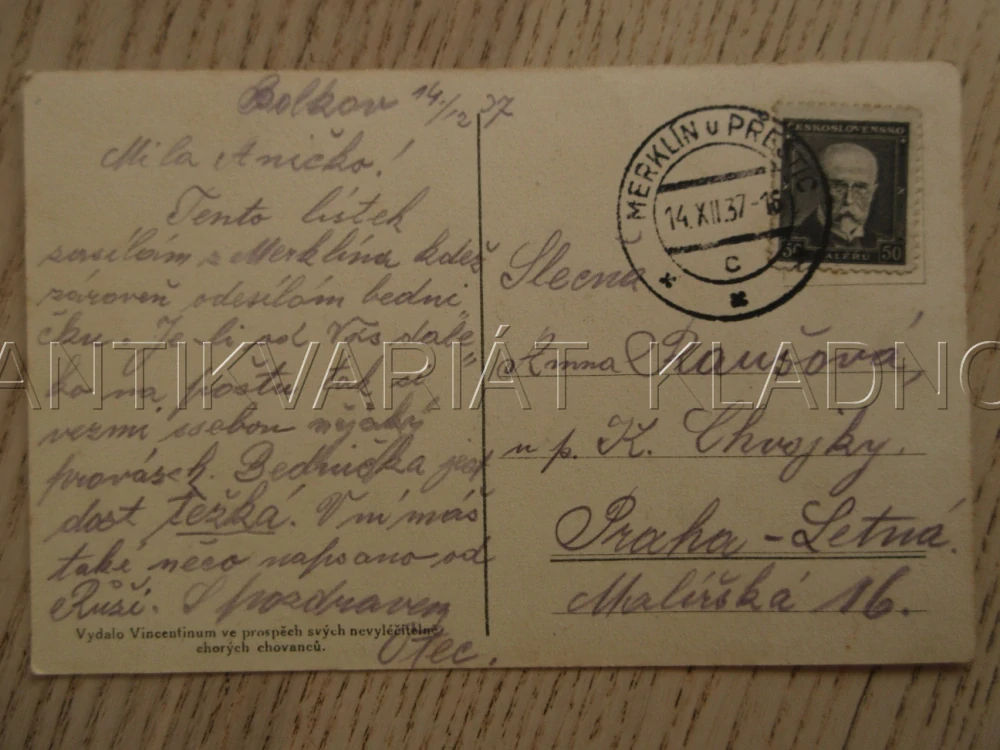 Bolkov 14./12 37
Milá Aničko!
Tento lístek
zasílám z Merklína kdež
zároveň odesílám bedni
čku. Je li od Vás dale
ko na poštu tak si
vezmi ssebou nějaký
provásek. Bednička jest
dost těžká. V ní máš
také něco napsano od
Růži. S pozdravem
Otec.
Vydalo Vincentinum ve prospěch svých nevyléčitelně
chorých chovanců.
MERKLÍN u PŘEŠTIC
14.XII.37-16
C
ČESKOSLOVENSKO
50 HALÉŘŮ 50
Slečna
Anna
u p. K. Chvojky.
Praha - Letná.
Malířská 16.
ANTIKVARIÁT KLADNO